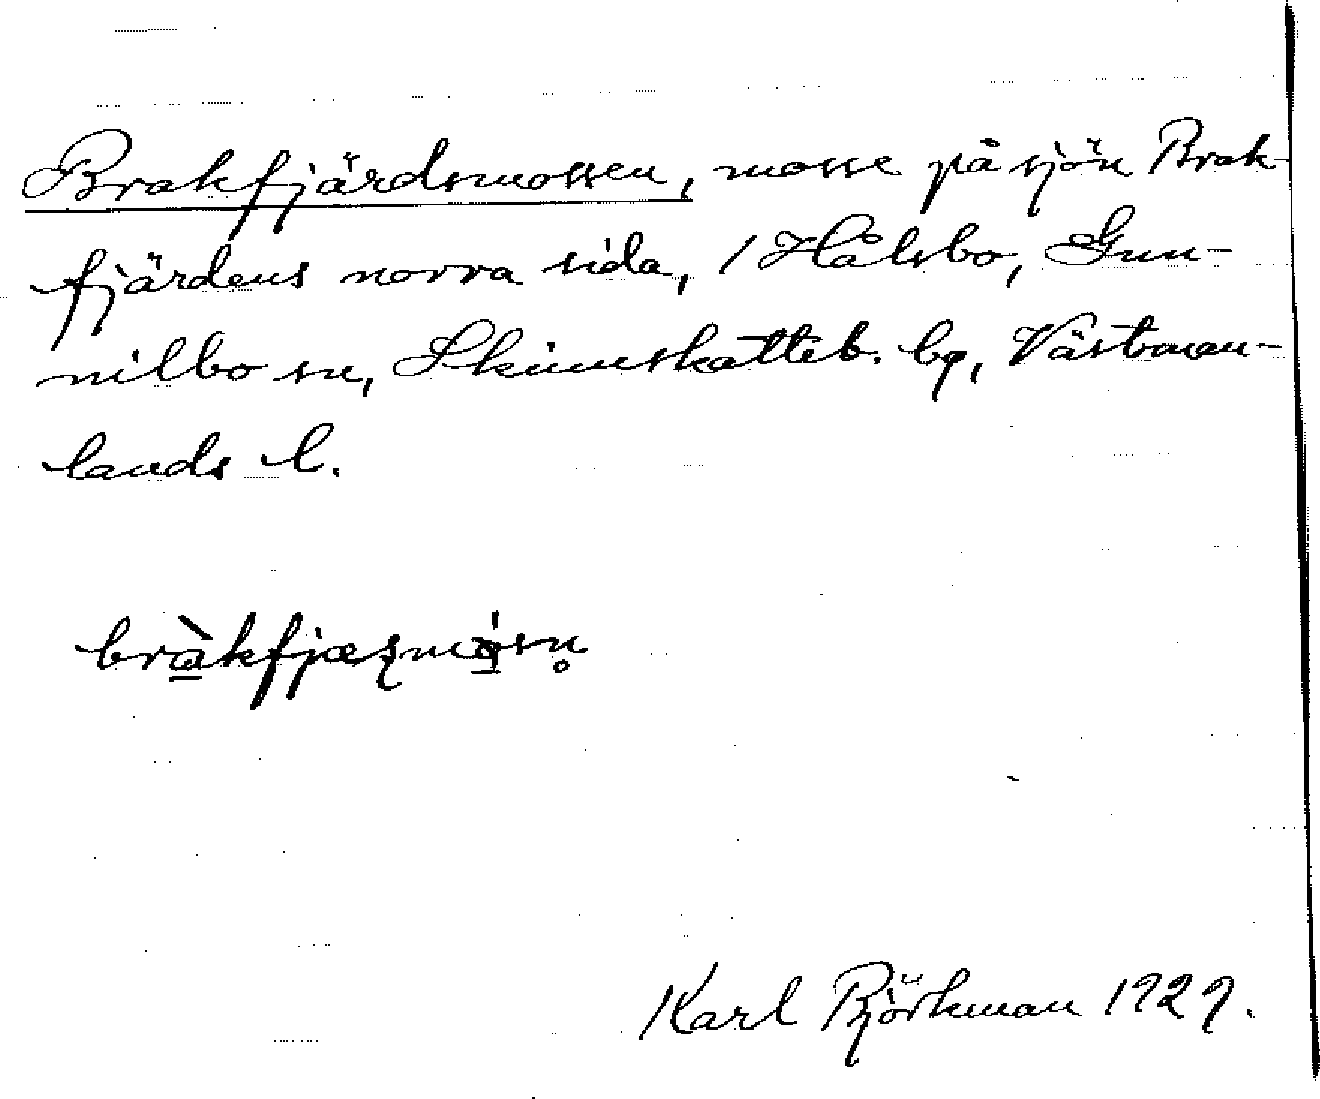 Brakfjärdsmossen, mosse på sjön Brak-
fjärdens norra sida, / Hålsbo, Gun-
nilbo sn, Skinnskatteb. bg, Västman-
lands l.
brà̱kfjæʂmó̱sn̥
Karl Björkman 1929.